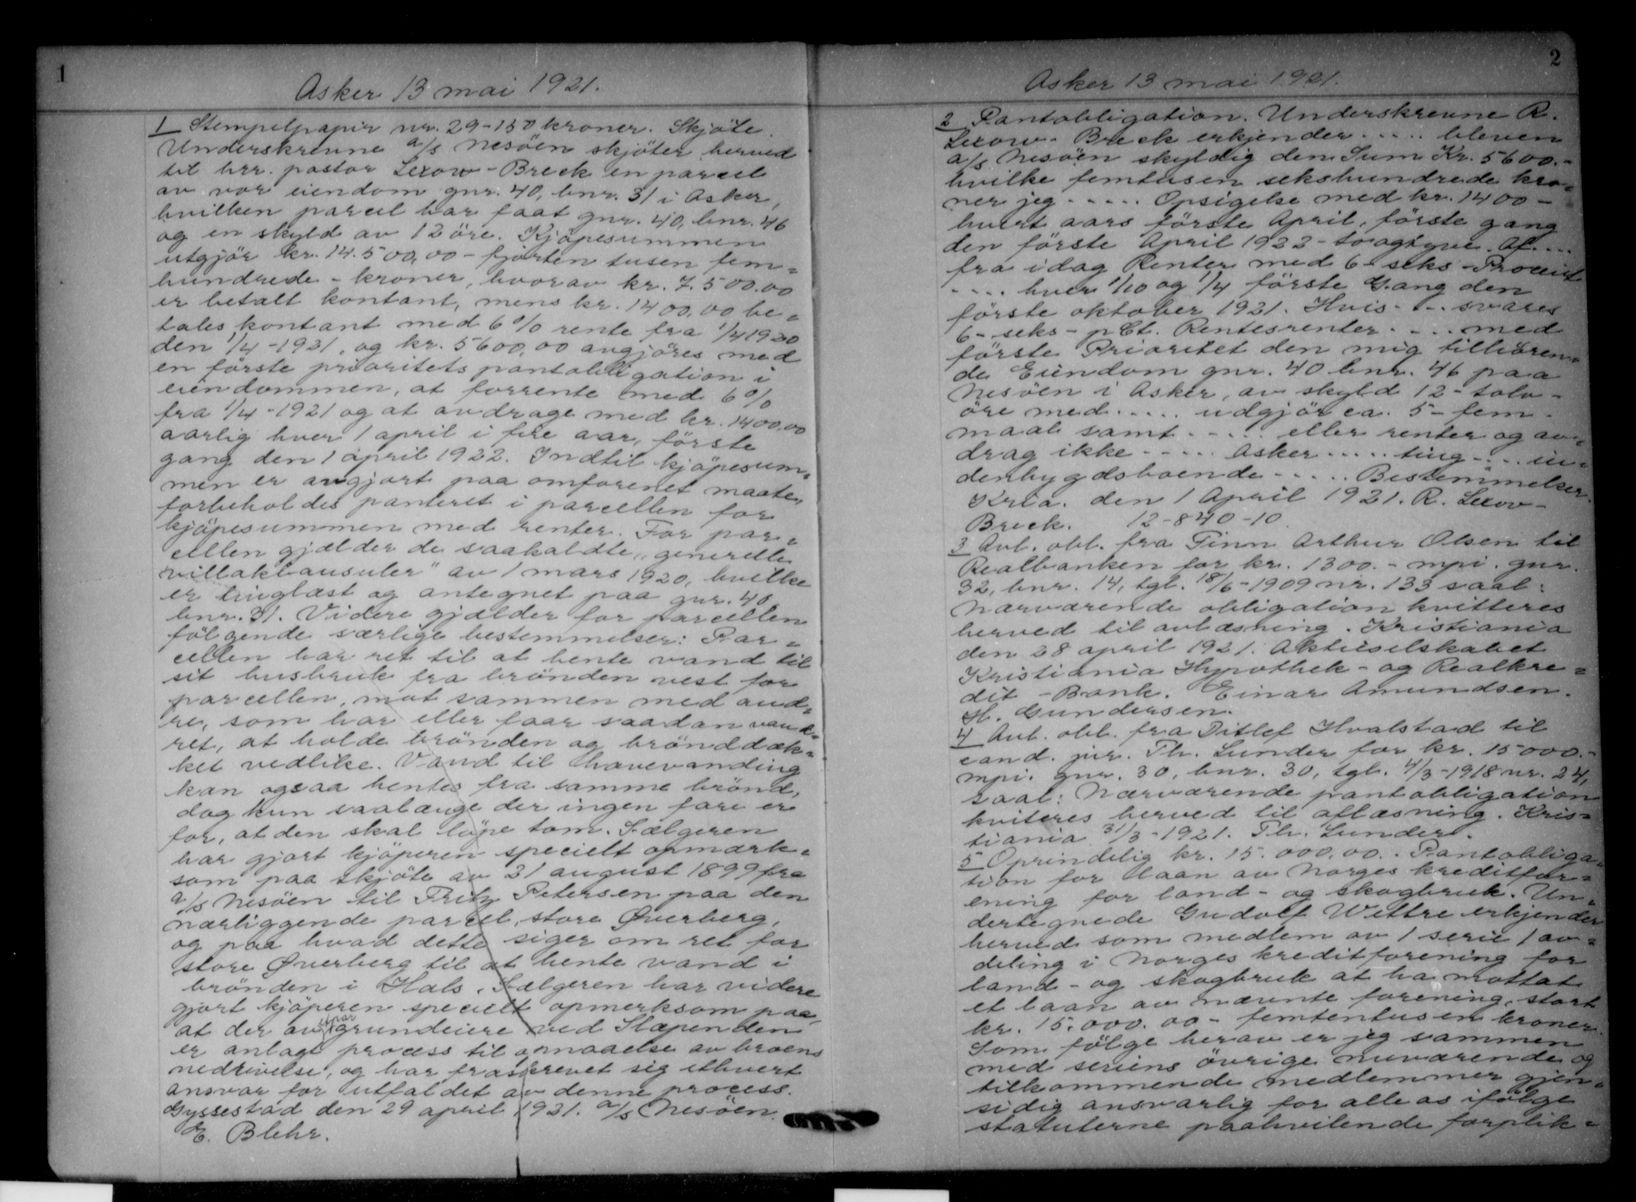 1
Asker 13 mai 1921.
1 Stempelpapir nr. 29-150 kroner. Skjöte.
Underskrevne a/s Nesöen skjöter herved
til hrr. pastor Lexow-Breck en parcel
av vor eiendom gnr. 40, bnr. 31 i Asker,
hvilken parcel har faat gnr. 40, bnr. 46
og en skyld av 12 öre. Kjöpesummen
utgjör kr. 14.500,00 - fjorten tusen fem=
hundrede - kroner, hvorav kr. 7.500.00
er betalt kontant, mens kr. 1400,00 be=
tales kontant med 6% rente fra 1/4 1920
den 1/4-1921, og kr. 5600,00 avgjöres med
en förste prioritets pantobligation i
eiendommen, at forrente med 6%
fra 1/4-1921 og at avdrage med kr. 1400,00
aarlig hver 1 april i fire aar, förste
gang den 1 april 1922. Indtil kjöpesum=
men er avgjort paa omforenet maate,
forbeholdes panteret i parcellen for
kjöpesummen med renter. For par=
cellen gjælder de saakaldte "generelle
villaklausuler" av 1 mars 1920, hvilke
er tinglæst og antegnet paa gnr. 40
bnr. 31. Videre gjælder for parcellen
fölgende særlige bestemmelser: Par=
cellen har ret til at hente vand til
sit husbruk fra brönden vest for
parcellen, mot sammen med and=
re, som har eller faar saadan vand=
ret, at holde brönden og brönddæk=
ket vedlike. Vand til havevanding
kan ogsaa hentes fra samme brönd,
dog kun saalænge der ingen fare er
for, at den skal löpe tom. Sælgeren
har gjort kjöperen specielt opmærk=
som paa skjöte av 31 august 1899 fra
a/s Nesöen til Fritz Petersen paa den
nærliggende parcel, store Øverberg,
og paa hvad dette siger om ret for
store Øverberg til at hente vand i
brönden i Hals. Sælgeren har videre
gjort kjöperen specielt opmerksom paa
at der av et par grundeiere ved Slæpenden
er anlagt process til opnaaelse av broens
nedrivelse, og har fraskrevet sig ethvert
ansvar for utfaldet av denne process.
Gyssestad den 29 april 1921. a/s Nesöen
E. Blehr.
2
Asker 13 mai 1921.
2 Pantobligation. Underskrevne R.
Lexow-Breck erkjender ..... bleven
a/s Nesöen skyldig den Sum Kr. 5600.-
hvilke femtusen sekshundrede kro=
ner jeg ..... Opsigelse med kr. 1400-
hvert aars förste April, förste gang
den förste April 1922 - toogtyve. Af....
fra idag Renter med 6 - seks - Procent
.... hver 1/10 og 1/4 förste Gang den
förste oktober 1921. Hvis ... svares
6 - seks - pCt. Rentesrenter .... med
förste Prioritet den mig tilhören=
de Eiendom gnr. 40 bnr. 46 paa
Nesöen i Asker, av skyld 12 - tolv -
öre med .... udgjör ca. 5 - fem -
maal samt ..... eller renter og av=
drag ikke ..... Asker ..... ting .... in=
denbygdsboende ..... Bestemmelser.
Kria. den 1 April 1921. R. Lexow-
Breck. 12-840-10
3 Avl. obl. fra Finn Arthur Olsen til
Realbanken for kr. 1300.- mpi. gnr.
32, bnr. 14, tgl. 18/6-1909 nr. 133 saal:
Nærværende obligation kvitteres
herved til avlæsning. Kristiania
den 28 april 1921. Aktieselskabet
Kristiania Hypothek- og Realkre=
dit-Bank. Einar Amundsen.
H. Gundersen.
4 Avl. obl. fra Ditlef Hvalstad til
cand. jur. Th. Lunder for kr. 15000.-
mpi. gnr. 30, bnr. 30, tgl. 4/3-1918 nr. 24,
saal: Nærværende pantobligation
kviteres herved til aflæsning. Kris=
tiania 31/3-1921. Th. Lunder.
5 Oprindelig kr. 15.000,00. Pantobliga=
tion for laan av Norges kreditfor=
ening for land- og skogbruk. Un=
dertegnede Gudolf Wettre erkjender
herved som medlem av 1 serie 1 av=
deling i Norges kreditforening for
land- og skogbruk at ha mottat
et laan av nævnte forening, stort
kr. 15.000.00 - femtentusen kroner.
Som fölge herav er jeg sammen
med seriens övrige nuværende og
tilkommende medlemmer gjen=
sidig ansvarlig for alle as ifölge
statuterne paahvilende forplik=